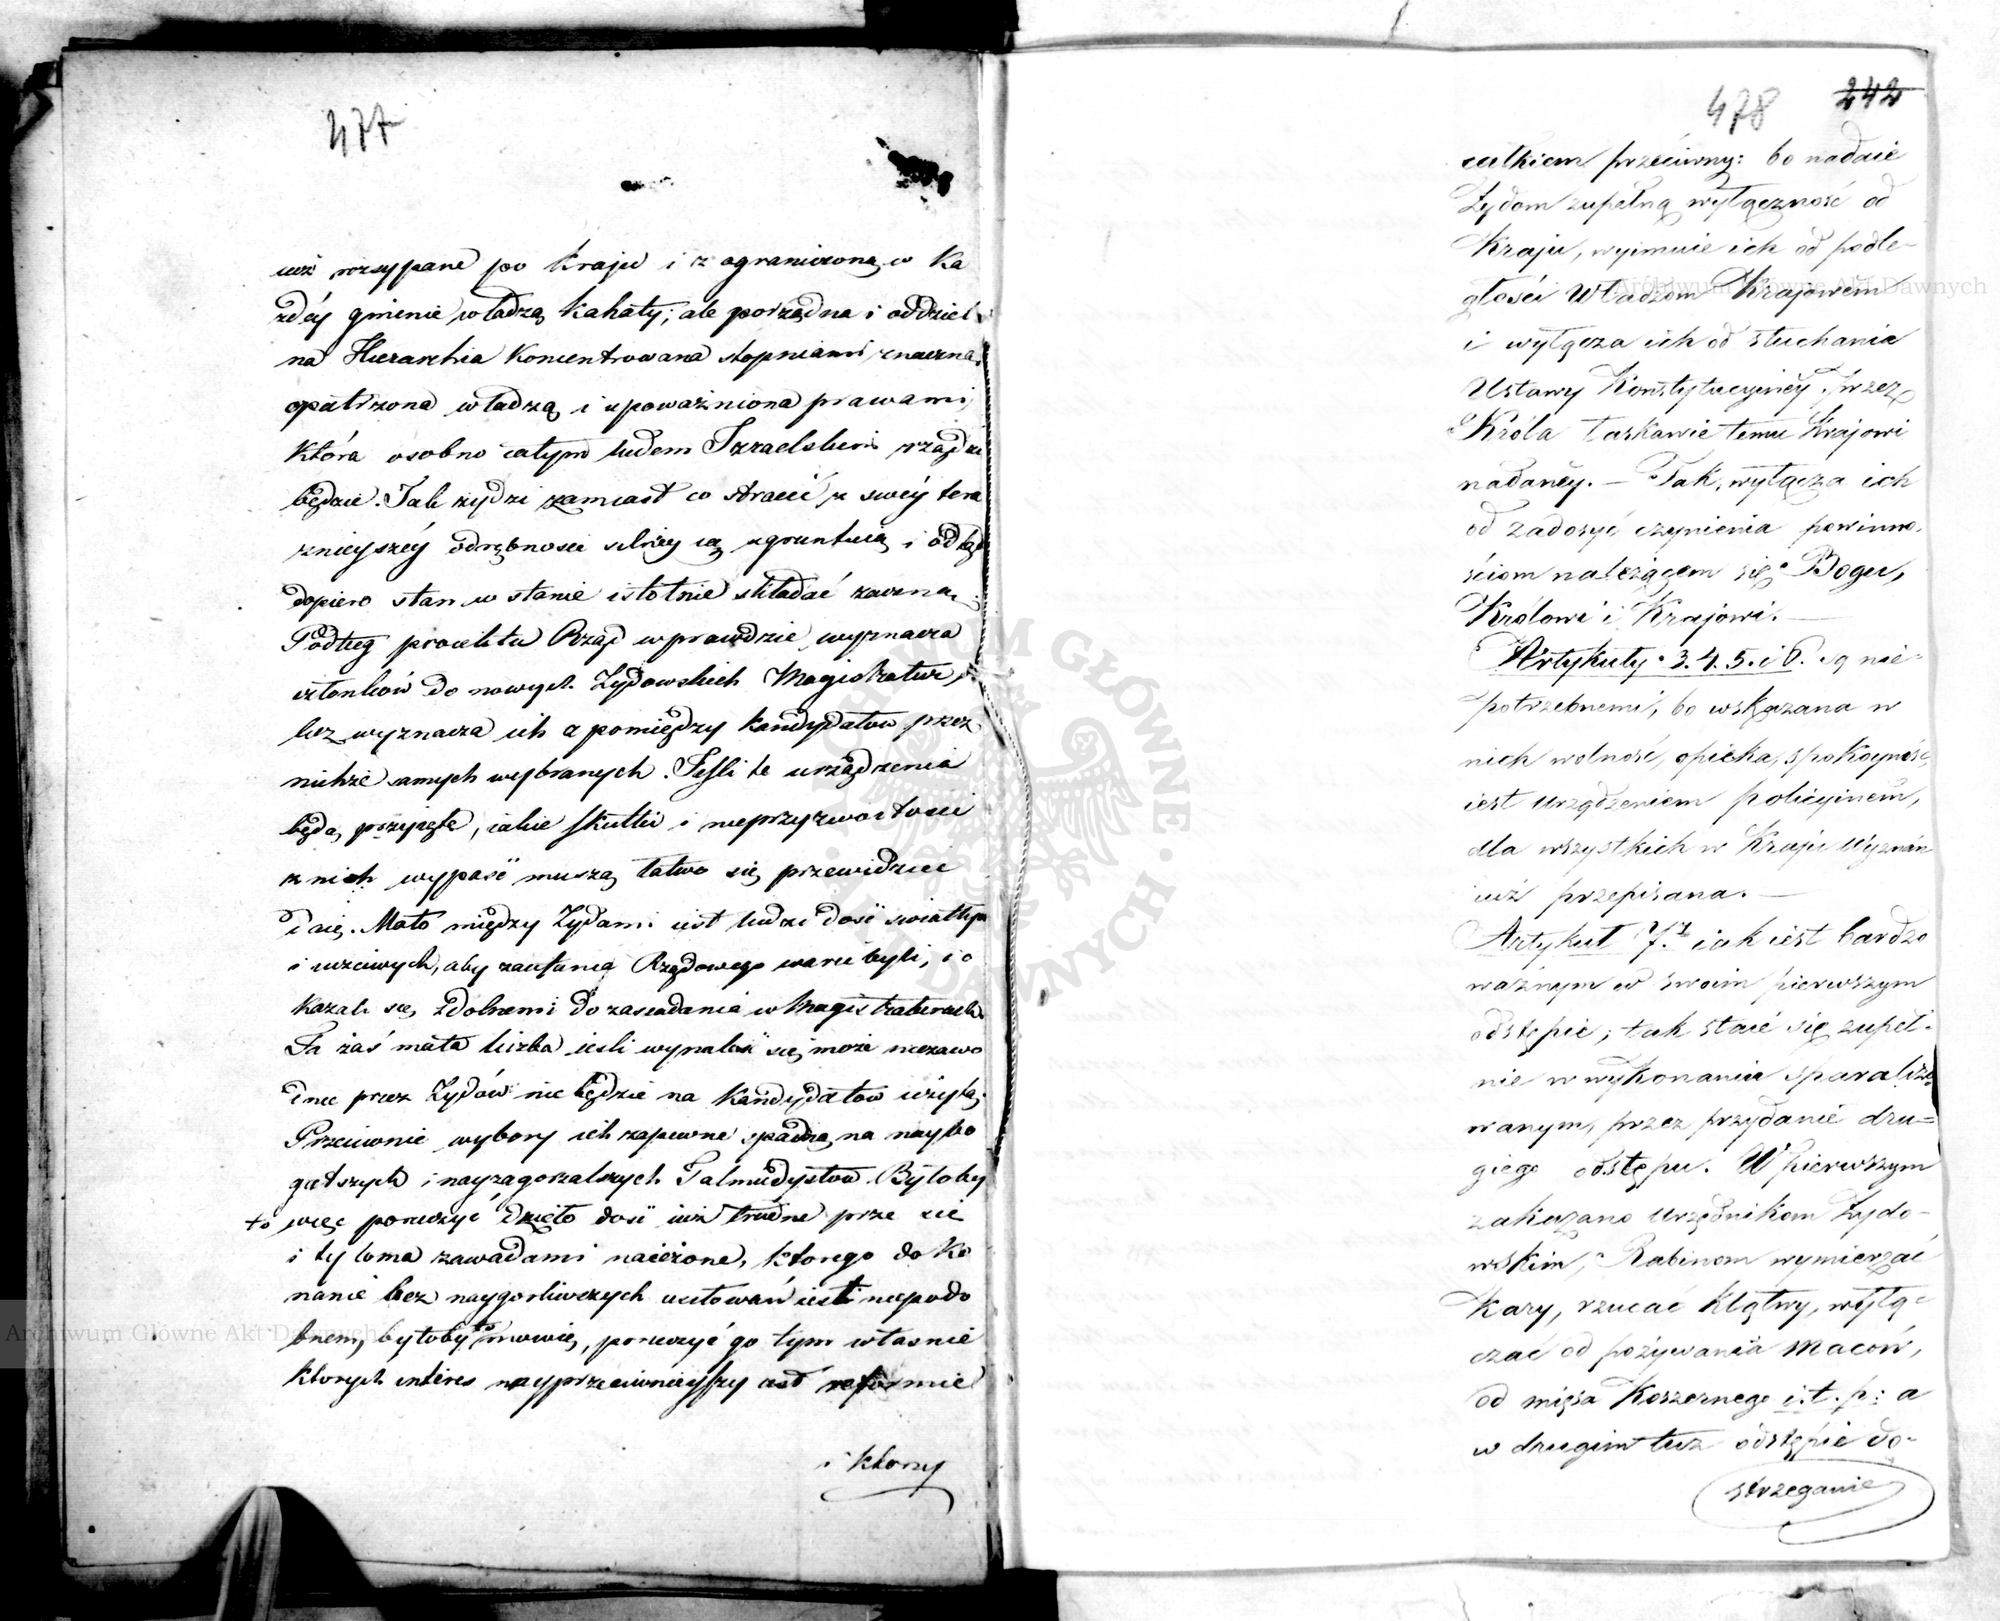 477
iuż rozsypane po kraju i z ograniczoną w Ka
żdéy gminie władzą kahały; ale porządna i oddziel
na Hierarchia koncentrowana stopniami, znaczną
opatrzona władzą i upoważniona prawami,
która osobno całym ludem Izraelskim rządzić
będzie. Tak żydzi zamiast co stracić z swéy tera
znieyszéy odrębności silniey ią ugruntuią i odtąd
dopiero stan w stanie istotnie składać zaczną.
Podług proiektu Rząd wprawdzie wyznacza
członków do nowych Żydowskich Magistratur,
lecz wyznacza ich z pomiędzy kandydatów przez
nichże samych wybranych. Jeśli te urządzenia
będą przyięte, iakie skutki i nieprzyzwoitości
z nich wypaść muszą łatwo się przewidzieć
daie. Mało między Żydami iest ludzi dość światłych
i uczciwych, aby zaufania Rządowego warci byli, i o
kazali się zdolnemi do zasiadania w Magistraturach
Ta zaś mała liczba ieśli wynaleść się może niezawo
dnie przez Żydów nie będzie na Kandydatów użytą.
Przeciwnie wybory ich zapewne spadną na naybo
gatszych i nayzagorzalszych Talmudystów. Byłoby
to więc poruczyć dzieło dość iuż trudne prze się
i tyloma zawadami naieżone, którego doko
nanie bez naygorliwszych usiłowań iest niepodo
bnem, byłoby to mowię, poruczyć go tym własnie
których interes nayprzeciwnieyszy iest reformie
i ktorzy
478 242
całkiem przeciwny: bo nadaie
Żydom zupełną wyłączność od
Kraju, wyimuie ich od podle-
głości Władzom Krajowem
i wyłącza ich od słuchania
Ustawy Konstytucyinéy przez
Króla łaskawie temu Krajowi
nadanéy. — Tak, wyłącza ich
od zadosyć czynienia powinno-
ściom należącem się Bogu,
Królowi i Krajowi. —
Artykuły 3. 4. 5. i 6. są nie-
potrzebnemi, bo wskazana w
nich wolność, opieka, spokoyność,
iest urządzeniem policyinem,
dla wszystkich w Kraju Wyznań
iuż przepisana. —
Artykuł 7.y iak iest bardzo
ważnym w swoim pierwszym
odstępie; tak staie się zupeł-
nie w wykonaniu sparaliżo-
wanym, przez przydanie dru-
giego odstępu. W pierwszym
zakazano Urzędnikom Żydo-
wskim, Rabinom wymierzać
Kary, rzucać Klątwy, wyłą-
czać od pożywania maców,
od mięsa Koszernego i. t. p: a
w drugim tuż odstępie do-
strzeganie
Archiwum Główne Akt Dawnych
Archiwum Główne Akt Dawnych
ARCHIWUM GŁÓWNE AKT DAWNYCH